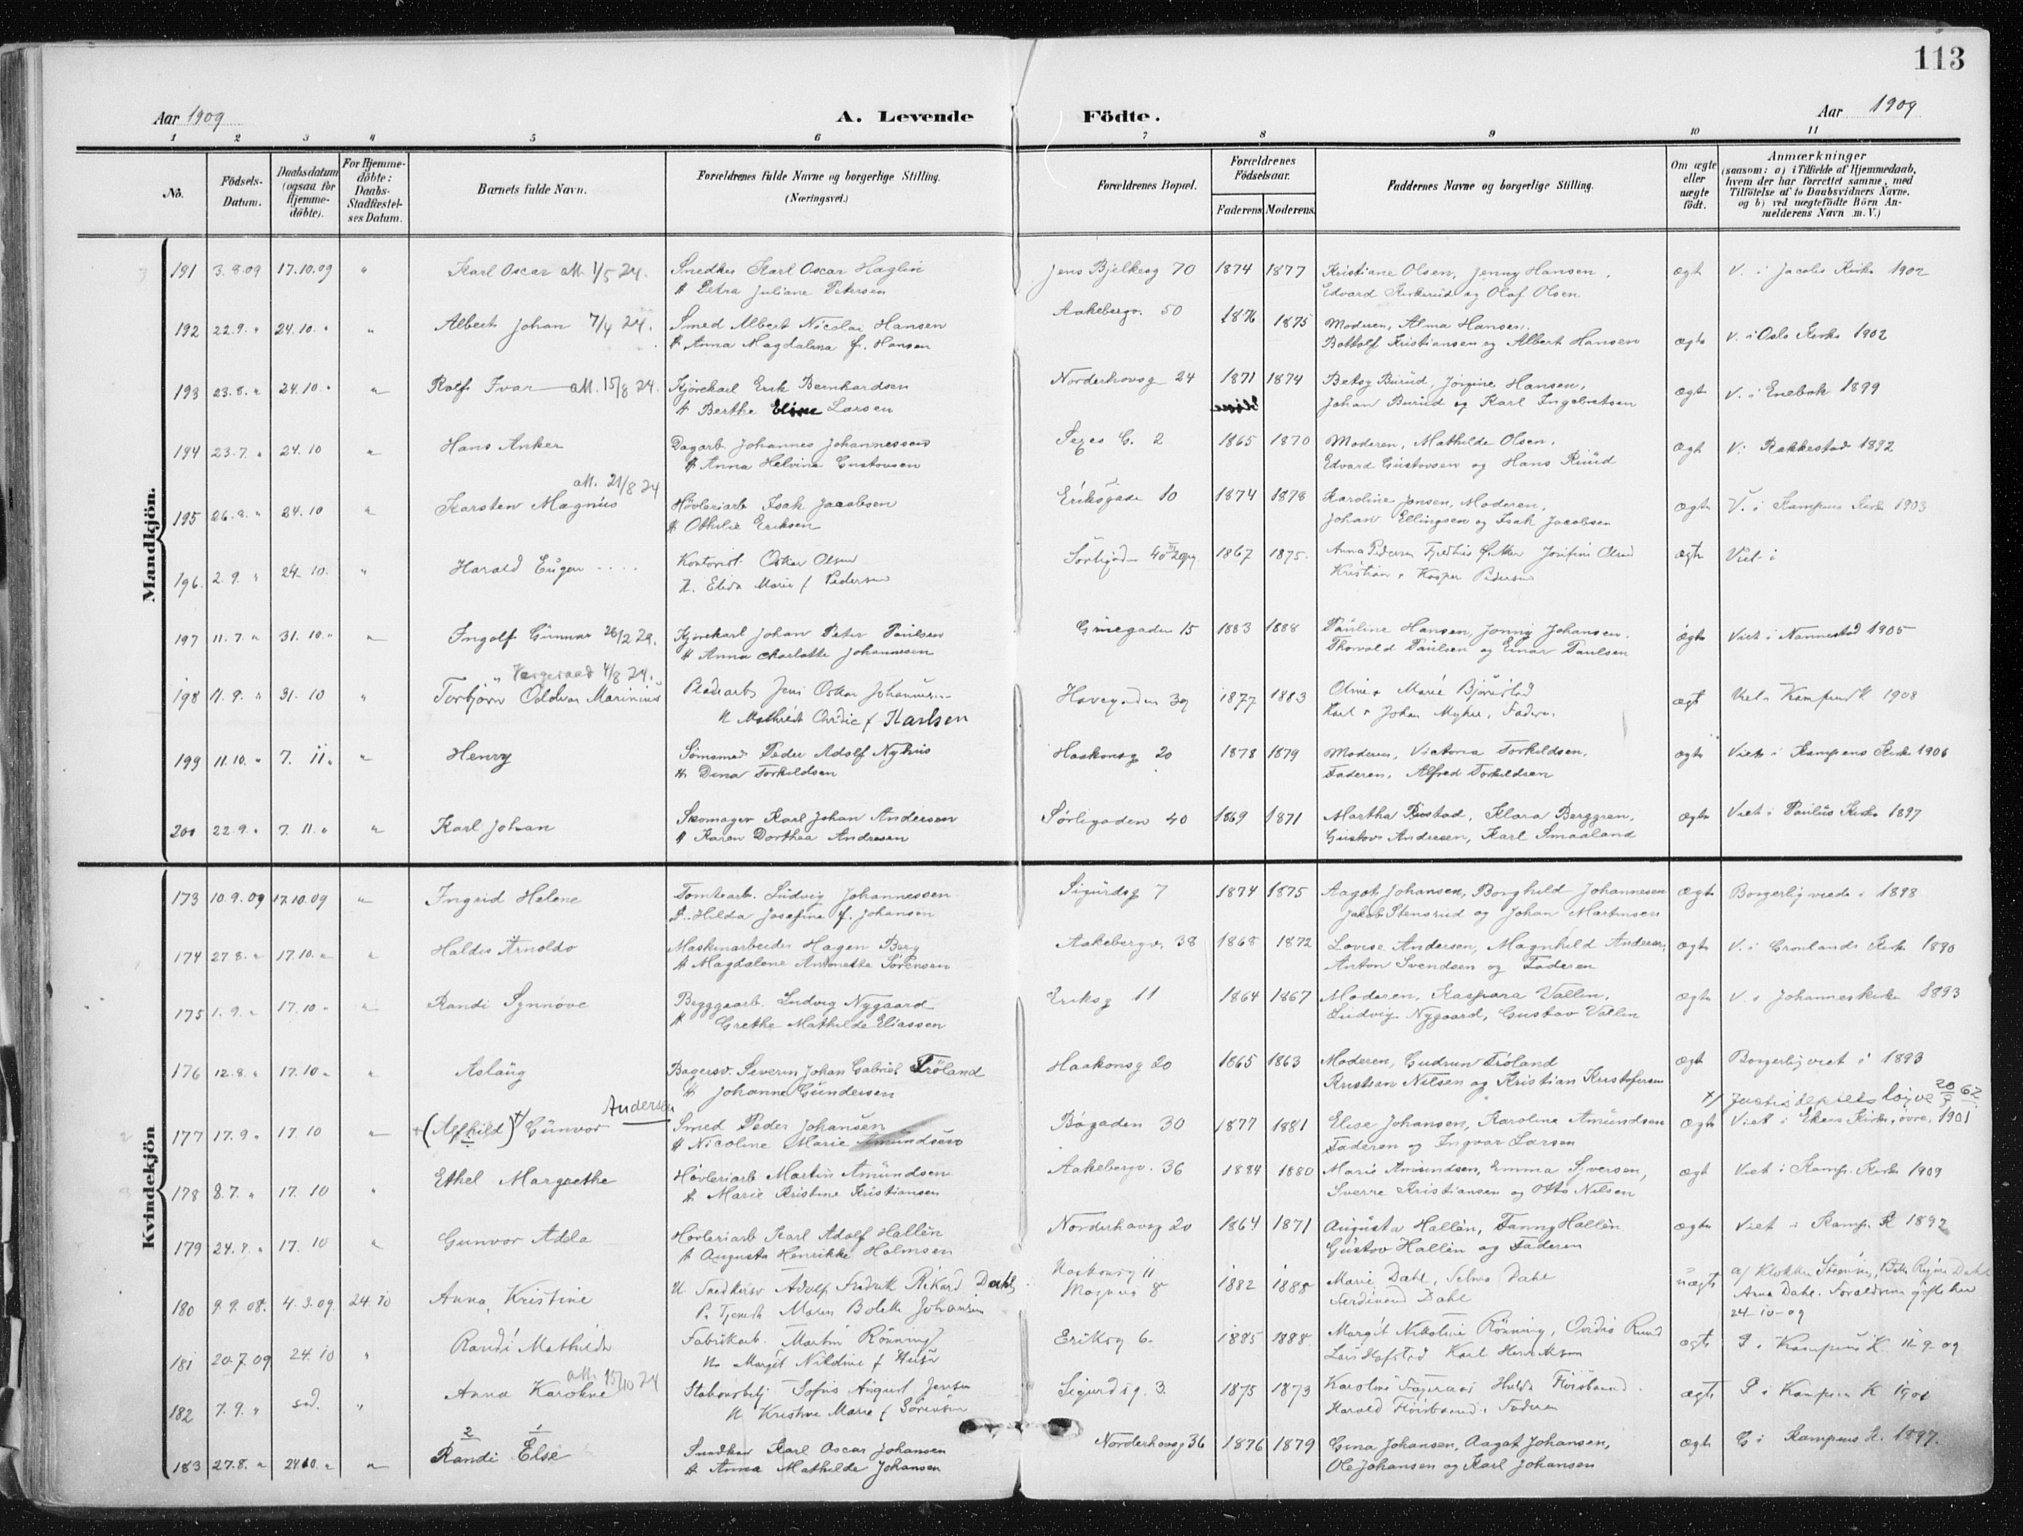 113
Aar 1909 A. Levende Födte. Aar 1909
1 2 3 4 5 6 7 8 9 10 11
No. Födsels-Datum. Daabsdatum (ogsaa for Hjemme-döbte). For Hjemme-döbte: Daabs-Stadfæstel-ses Datum. Barnets fulde Navn. Forældrenes fulde Navne og borgerlige Stilling. (Næringsvei.) Forældrenes Bopæl. Forældrenes Födselsaar. Faderens. Moderens. Faddernes Navne og borgerlige Stilling. Om ægte eller uægte födt. Anmærkninger (saasom: a) i Tilfælde af Hjemmedaab, hvem der har forrettet samme, med Tilföielse af to Daabsvidners Navne, og b) ved uægtefödte Börn An-melderens Navn m. V.)
Mandkjön.
191 3.8.09 17.10.09 " Karl Oscar att. 1/5 24. Snedker Karl Oscar Haglin Jens Bjelkesg 70 1874 1877 Kristiane Olsen, Jenny Hansen, ægt V. i Jacobs Kirke 1902
H Petra Juliane Petersen Edvard Kirkerud og Olaf Olsen
192 22.9. " 24.10. " " Albert Johan 7/4 24. Smed Albert Nicolai Hansen Aakebergv. 50 1876 1875 Moderen, Alma Hansen, ægte V. i Oslo Kirke 1902
H Anna Magdalena f. Hansen Bottolf Kristiansen og Albert Hansen
193 23.8. " 24.10 " " Rolf Ivar att. 15/8 24. Kjörekarl Erik Bernhardsen Norderhovsg 24 1871 1874 Betsy Burud, Jörgine Hansen, ægt V. i Enebak 1899
H Berthe Eline Larsen Eline Johan Burud og Karl Ingebretsen
194 23.7. " 24.10 " Hans Anker Dagarb Johannes Johannessen G. 2 1865 1870 Moderen, Mathilde Olsen, ægt V. Rakkestad 1892
H Anna Helvine Gustavsen Edvard Gustavsen og Hans Ruud
195 26.8. " 24.10 " Karsten Magnus att. 21/8 24 Hövleriarb Isak Jacobsen Eriksgade 10 1874 1878 Karoline Jensen, Moderen, ægte V. i Kampens Kirke 1903
H Othilie Eriksen Johan Ellingsen og Isak Jacobsen
196. 2.9. " 24.10. " Harald Eugen Kontorist Oskar Olsen Sörligaden 40 1867 1875. Anna Pedersen ægte Viet i
H. Elida Marie f Pedersen Kristian & Kasper Pedersen
197 11.7. " 31.10. " " Ingolf Gunnar 26/2 24. Kjörekarl Johan Peter Paulsen Grünegaden 15 1883 1888 Pauline Hansen, Jenny Johansen, ægte Viet i Nannestad 1905
H Anna Charlotte Johannesen Thorvald Paulsen og Einar Paulsen
198 11.9. " 31.10 " Torbjörn Oddvar Marinius Vergeraad 4/8 24. Pladsarb Jens Oskar Havegaden 39 1877 1883 Marie ægt Viet i Kampens K 1908
H Karlsen Karl & Johan
199 11.10. " 7. 11. " " Henry Sömsmed Peder Adolf Nyhus Haakonsg 20 1878 1879 Moderen, Victoria Torkildsen, ægte Viet i Kampens Kirke 1906
H Dina Torkildsen Faderen, Alfred Torkildsen
200 22.9. " 7. 11. " " Karl Johan Skomager Karl Johan Andersen Sörligaden 40 1869 1871 Martha Rustad, Klara Berggren, ægte Viet i Paulus Kirke 1897
H Karen Dorthea Andresen Gustav Andersen, Karl Smaaland
Kvindekjön
173 10.9.09 17.10.09 " Ingrid Helene Tomtearb. Ludvig Johannessen Sigurdsg 7 1874 1875 Aagot Johansen, Borghild Johannesen ægte Borgerlig viede i 1898
H. Hilda Josefine f. Johansen Jakob Stensrud og Johan Martinsen
174 27.8. " 17.10. " " Haldis Arnoldo Maskinarbeider Hagen Berg Aakebergv. 38 1868 1872 Lovise Andersen, Magnhild Andersen, ægte V. i Grönlands Kirke 1890
H Magdalene Antonette Sörensen Anton Svendsen og Faderen
175 1.9. " 17.10 " " Randi Synnöve Byggearb. Ludvig Nygaard Eriksg 11 1864 1867 Moderen, Kaspara Vallin, ægte V. i Johanneskirke 1893
H Grethe Mathilde Eliassen Ludvig Nygaard, Gustav Vallin
176 12.8. " 17.10 " " Aslaug Bagersv. Severin Johan Gabriel Fröland Haakonsg 20 1865 1863 Moderen, Gudrun Fröland ægt Borgerlig viet i 1893
H Johanne Gundersen Kristian Nilsen og Kristian Kristofersen
x) 20/9 62
177 17.9. " 17.10 " +(Alfhild)x) Gunvor Andersen Smed Peder Johansen Bögaden 30 1877 1881 Elise Johansen, Karoline Amundsen ægte Viet i Ekers Kirke, övre, 1901
H Nicoline Marie Amundsen Faderen og Ingvar Larsen
178 8.7. " 17.10 " Ethel Margrethe Hövleriarb Martin Amundsen Aakebergv. 36 1884 1880 Marie Amundsen, Emma Syversen, ægt Viet i Kamp. Kirke 1909
H. Marie Kristine Kristiansen Sverre Kristiansen og Otto Nilsen
179 24.8. " 17.10 " Gunvor Adda Hövleriarb Karl Adolf Hallén Norderhovsg 20 1864 1871 Augusta Hallén, Fanny Hallén ægte Viet i Kamp. K 1892
H Augusta Henrikke Holmsen Gustav Hallén og Faderen
180 9.9.08. 4.3.09 24.10 Anna Kristine U. Snedkersv Adolf Fredrik Rikard Dahl Haakonsg 11 1882 1888 Marie Dahl, Selma Dahl uægte af Klokker
P. Tjenest. Maren Bolette Johansen 8 Ferdinand Dahl Anna Dahl. Forældrene gifte her
24-10-09
181 20.7.09 24.10 " Randi Mathilde Fabrikarb. Martin Rönning Eriksg 6. 1885 1888. Margit Nikoline Rönning, ægte i Kampens K. 11-9-09
H. Margit Nikoline f Karl Henriksen
182 7.9. " sd. " Anna Karoline att. 15/10 24 August Jensen Sigurdsg. 3. 1875 1873 ægte i Kampens K 1901
H Kristine Marie f Sörensen Harald Faderen
183 27.8. " 24.10. " " 2 Randi 1 Else Snedker Karl Oscar Johansen Norderhovsg 36 1876 1879 Gina Johansen, Aagot Johansen, ægte G i Kampens K. 1897.
H Anna Mathilde Johansen Ole Johansen og Karl Johansen